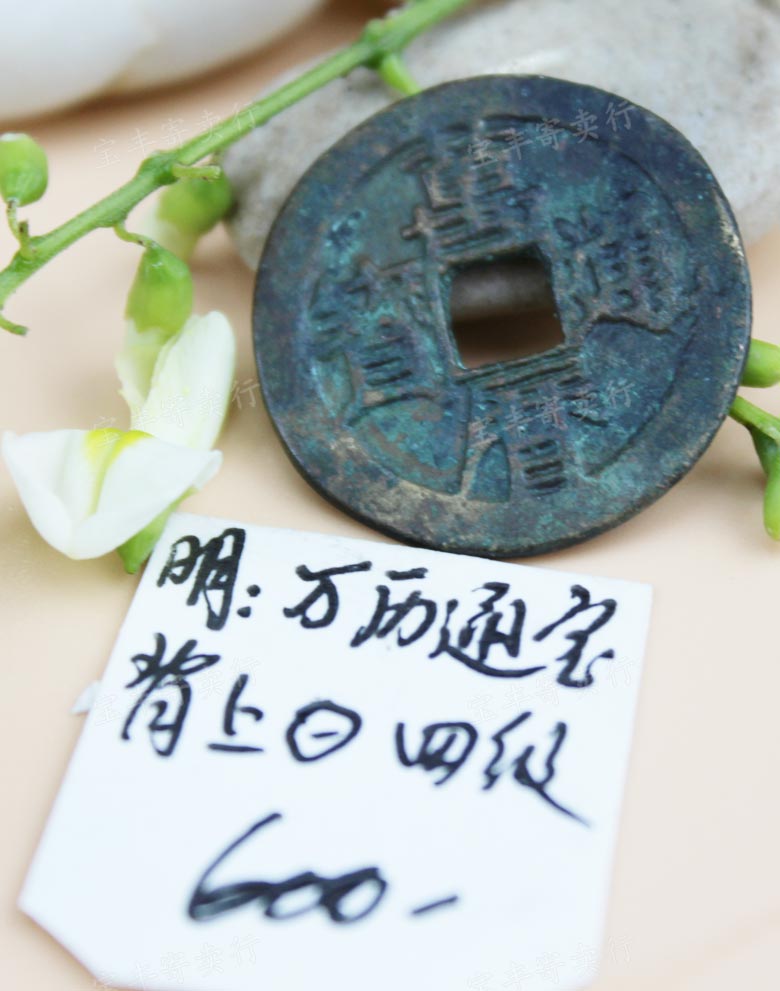 萬曆通寶
明:万历通宝
背上⊖四级
600-
宝丰寄卖行
宝丰寄卖行
宝丰寄卖行
宝丰寄卖行
宝丰寄卖行
宝丰寄卖行
宝丰寄卖行
宝丰寄卖行